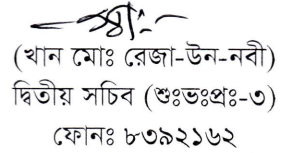 (খান মোঃ রেজা-উন-নবী)
দ্বিতীয় সচিব (শুঃভঃপ্রঃ-৩)
ফোনঃ ৮৩৯২১৬২